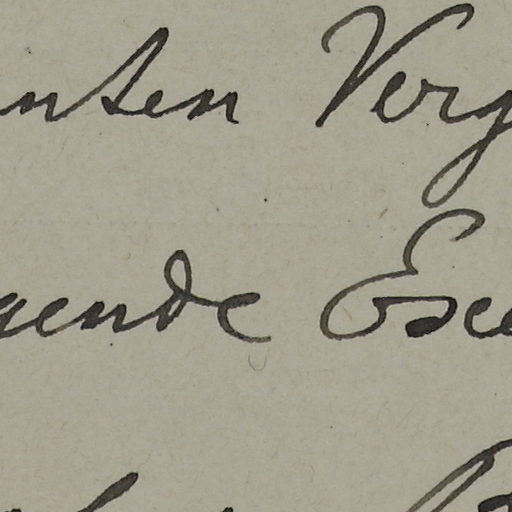 nten Verg
gende Exce